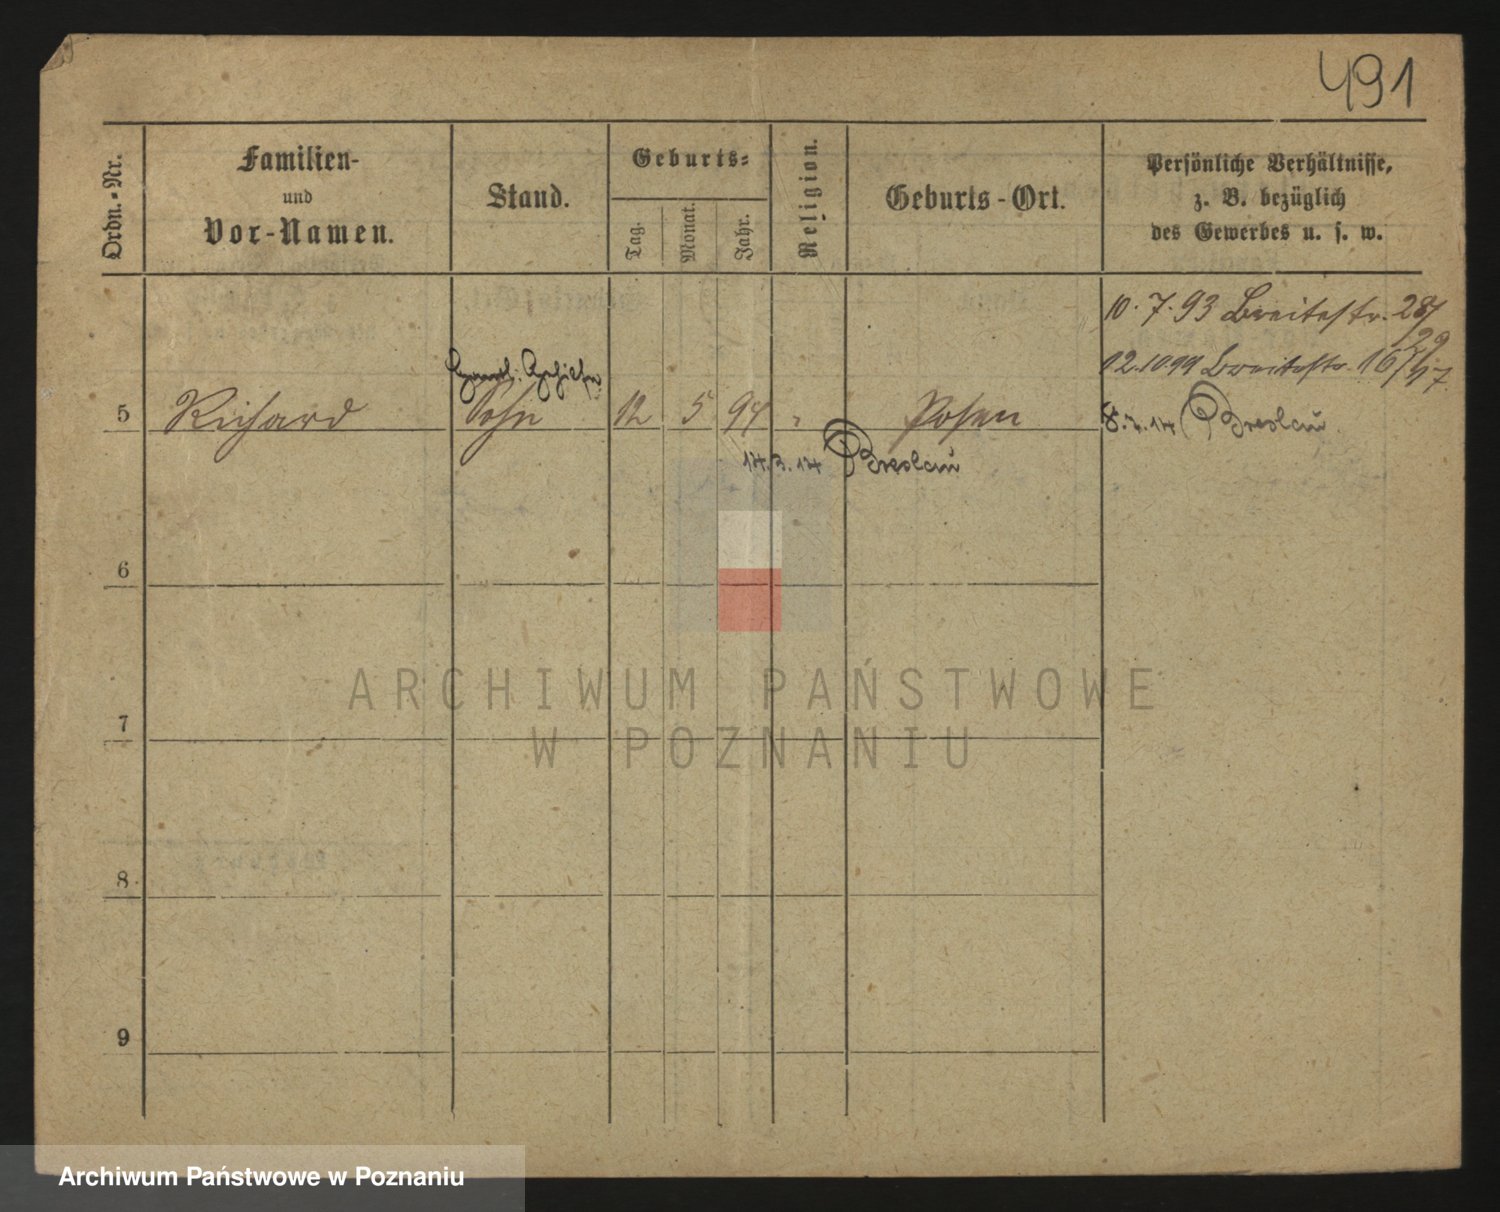 491
Ordn.-Nr.
Familien-
und
Vor-Namen.
Stand.
Geburts-
Tag.
Monat.
Jahr.
Religion.
Geburts-Ort.
Persönliche Verhältnisse,
z. B. bezüglich
des Gewerbes u. s. w.
10. 7. 93 Breitestr. 28/29
12.10 99 Breitestr. 16/17
Handl. Gehilfe
5 Richard Sohn 12 5 94 " Posen
Breslau
Breslau
6
7
8
9
ARCHIWUM PAŃSTWOWE
W POZNANIU
Archiwum Państwowe w Poznaniu